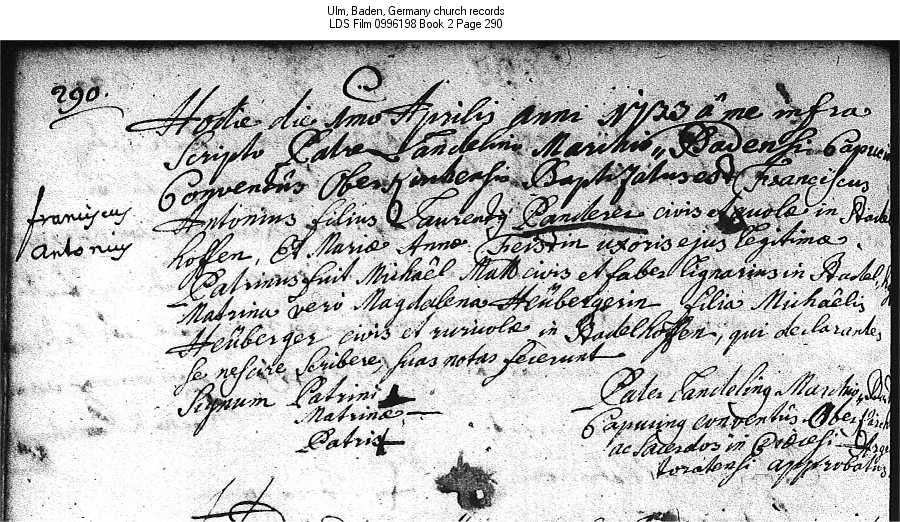 Ulm, Baden, Germany church records
LDS Film 0996198 Book 2 Page 290
290.
Hodie die 1mo Aprilis anni 1723 â me infra
scripto Patre Landelino Marchio Badensi Capucin
Conventûs Oberkirchensis Baptizatus est Franciscus
Antonius filius Laurentÿ Panderer civis et ruricolæ in Stadel
hoffen, Et Mariæ Annæ uxoris ejus legitimæ.
Patrinus fuit Michaël civis et faber lignarius in Stadel
Matrina verò Magdalena Heübergerin filia Michaëlis
Heüberger civis et ruricolæ in Stadelhoffen, qui declarantes
se nescire scribere, suas notas fecerunt
franciscus
Antonius
Signum Patrini +
Matrinæ —
Patris +
Pater Landelinus Marchio
Capucinus conventûs
ac Sacerdos in Diœcesi Argen
toratensi approbatus